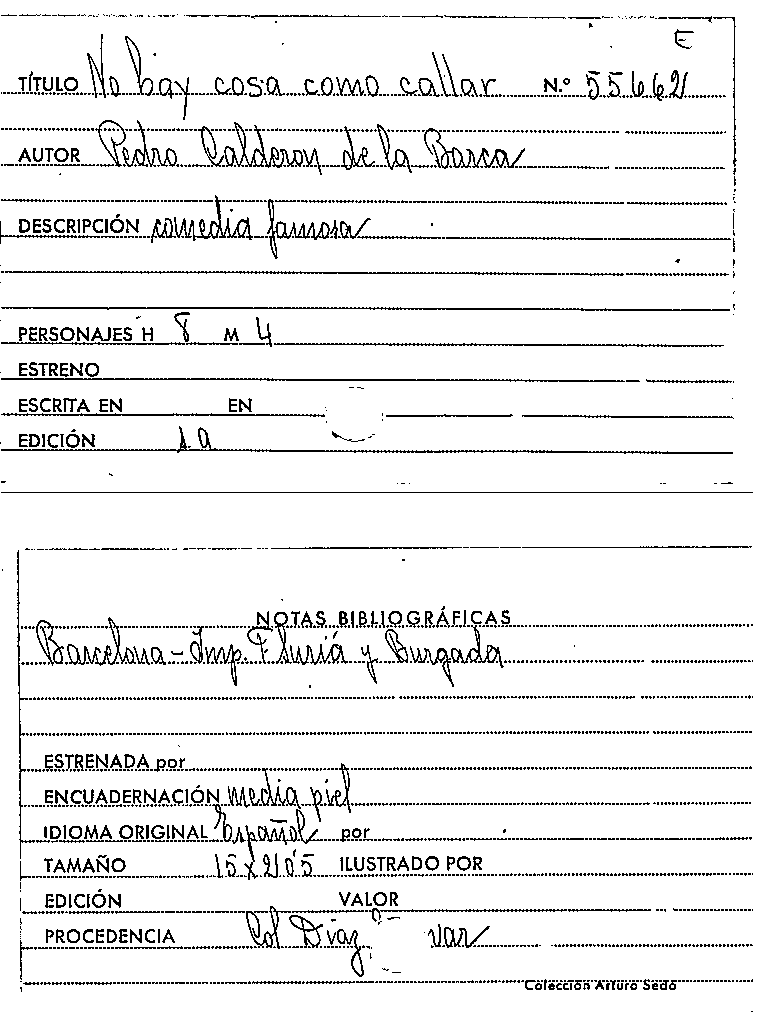 E
TÍTULO No hay cosa como callar N.º 55662
AUTOR Pedro Calderon de la Barca
DESCRIPCIÓN comedia famosa
PERSONAJES H 8 M 4
ESTRENO
ESCRITA EN EN
EDICIÓN s.a
NOTAS BIBLIOGRÁFICAS
Barcelona - Imp. F Suriá y Burgada
ESTRENADA por
ENCUADERNACIÓN media piel
IDIOMA ORIGINAL Español por
TAMAÑO 15 x 21'05 ILUSTRADO POR
EDICIÓN VALOR
PROCEDENCIA Col Diaz var
Colección Arturo Sedó